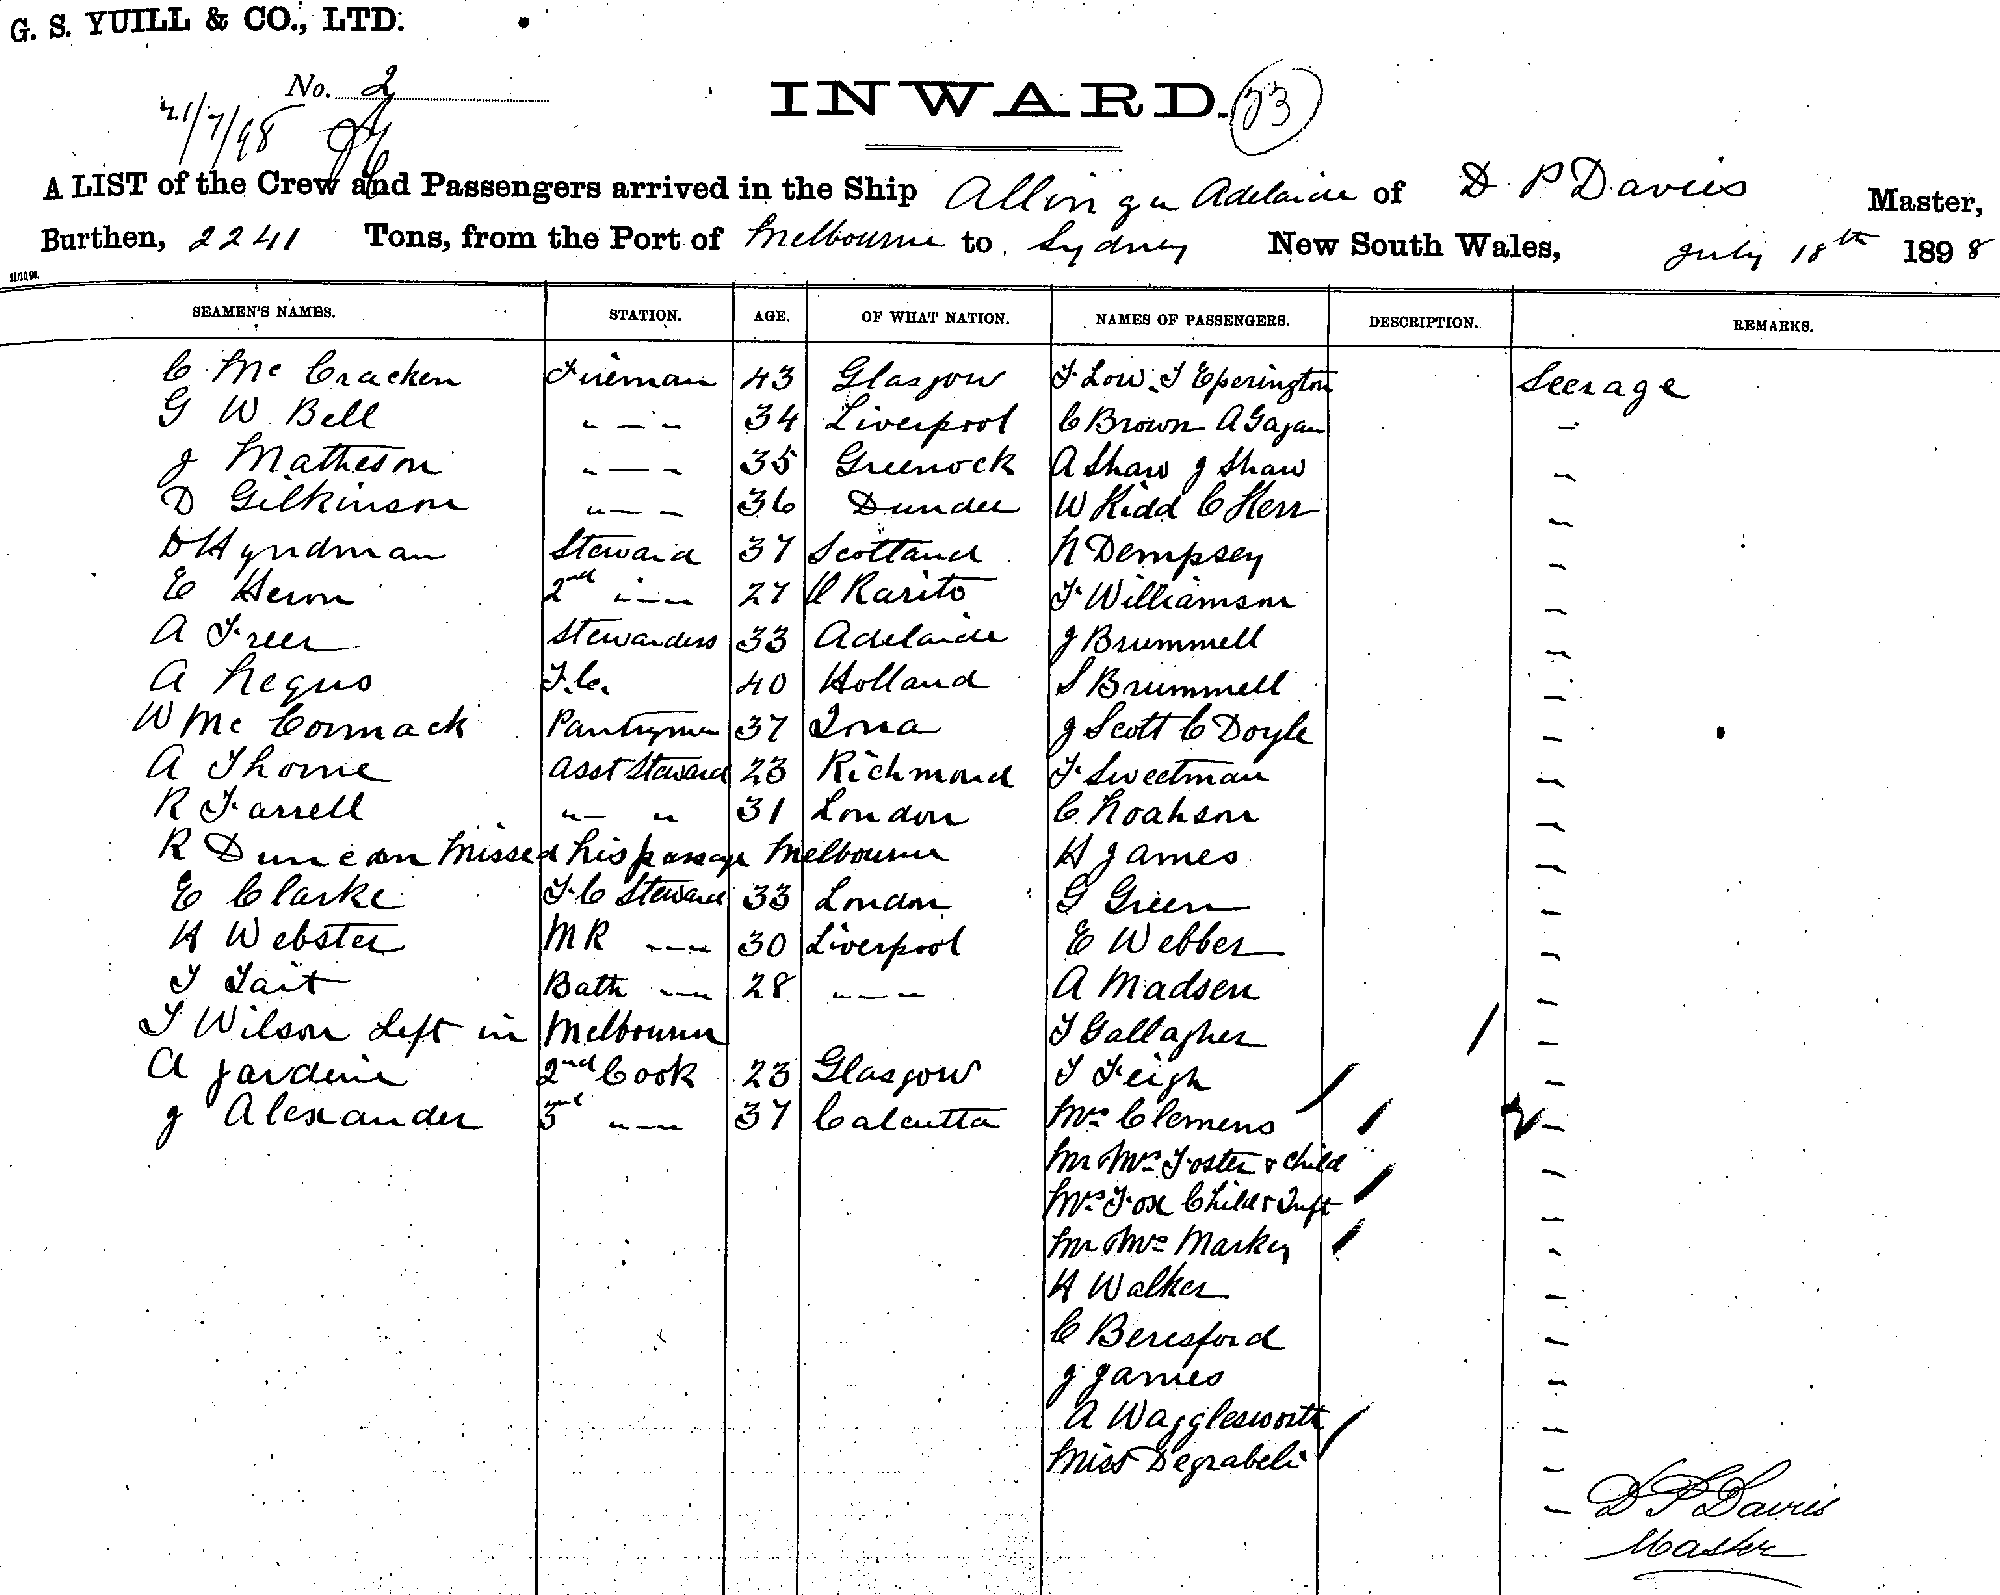 G. S. YUILL & CO., LTD.
No. 2
21/7/98
INWARD. 33
A LIST of the Crew and Passengers arrived in the Ship Allinga Adelaide of D P Davies Master,
Burthen, 2241 Tons, from the Port of Melbourne to Sydney New South Wales, July 18th 1898
SEAMEN'S NAMES. STATION. AGE. OF WHAT NATION. NAMES OF PASSENGERS. DESCRIPTION. REMARKS.
C Mc Cracken Fireman 43 Glasgow F Low. T Eperington Steerage
G W Bell " — " 34 Liverpool C Brown A Gagan "
J Matheson " — " 35 Greenock A Shaw J Shaw "
D Gilkinson " — " 36 Dundee W Kidd C Kerr "
D Hyndman Steward 37 Scotland N Dempsey "
E Heron 2nd " — " 27 Rarito F Williamson "
A Freer Stewardess 33 Adelaide J Brummell "
A Negus F.C. 40 Holland S Brummell "
W Mc Cormack Pantryman 37 Iona J Scott C Doyle "
A Thorne Asst Steward 23 Richmond F Sweetman "
R Farrell " " 31 London C Noahson "
R Duncan Missed his passage Melbourne H James "
E Clarke F.C Steward 33 London G Green "
H Webster MR " — " 30 Liverpool E Webber "
T Tait Bath " — " 28 " — " A Madsen "
T Wilson Left in Melbourne T Gallagher "
A Jardine 2nd Cook 23 Glasgow T Feigh "
J Alexander 3rd " — " 37 Calcutta Mrs Clemens "
Mr & Mrs Foster & Child "
Mrs Fox Child & Inft "
Mr & Mrs Markey "
H Walker "
C Beresford "
J James "
A Wagglesworth "
Miss Degrabeli "
D P Davies
Master